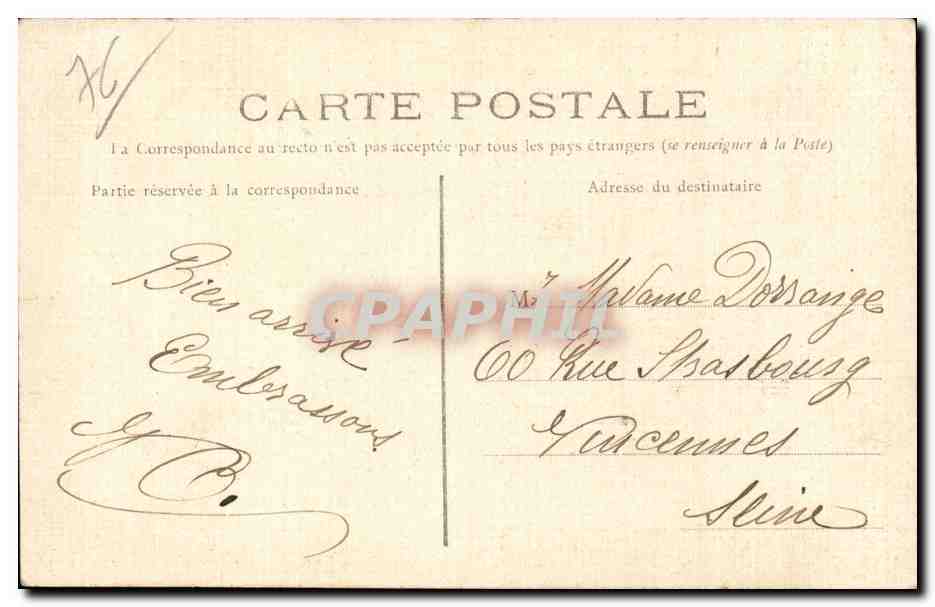 76
CARTE POSTALE
La Correspondance au recto n'est pas acceptée par tous les pays étrangers (se renseigner à la Poste)
Partie réservée à la correspondance
Adresse du destinataire
Bien arrivé
Embrassons
B.
M Madame Dorrange
60 Rue Strasbourg
Vincennes
Seine
CPAPHIL